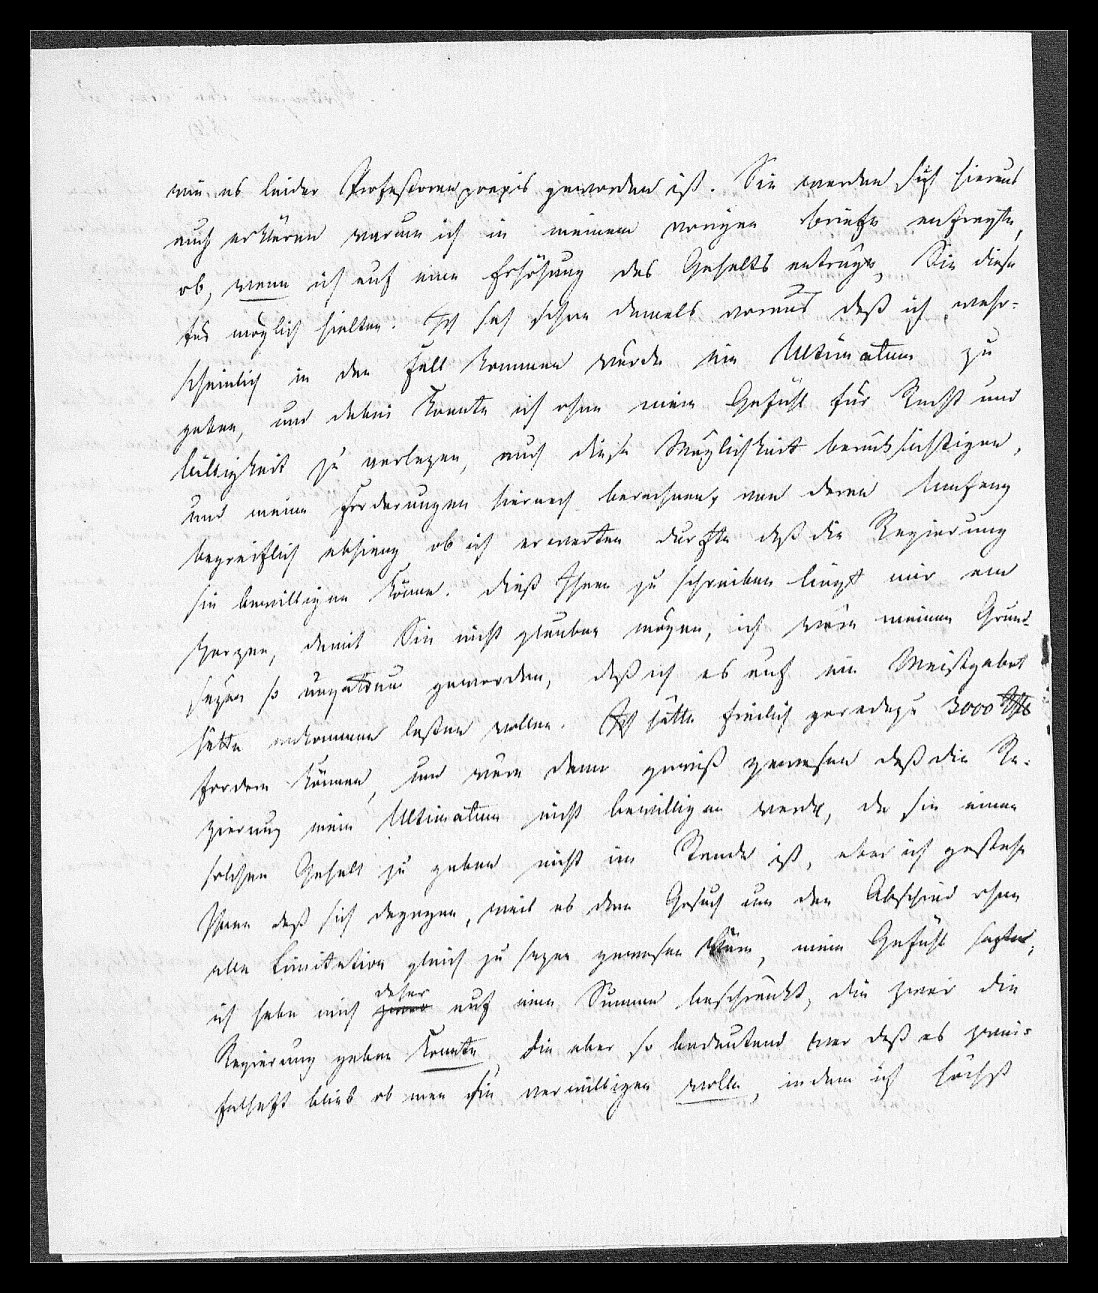 wie es leider Professorenpraxis geworden ist. Sie werden sich hieraus
auch erklären warum ich in meinem vorigen Briefe anfragte,
ob, wenn ich auf eine Erhöhung des Gehalts antrüge, Sie diese
für möglich hielten. Ich sah schon damals voraus daß ich wahr-
scheinlich in den Fall kommen würde ein Ultimatum zu
geben, und dabei konnte ich ohne mein Gefühl für Recht und
billigkeit zu verlezen, auch diese Möglichkeit berücksichtigen,
und meine Forderungen hiernach berechnen, von deren Umfang
begreiflich abhieng ob ich erwarten durfte daß die Regierung
sie bewilligen könne. Dieß Ihnen zu schreiben liegt mir am
Herzen, damit Sie nicht glauben mögen, ich wäre meinen Grund-
säzen so ungetreu geworden, daß ich es auf ein Meistgebot
hätte ankommen laßen wollen. Ich hätte freilich geradezu 3000
fordern können, und wäre dann gewiß gewesen daß die Re-
gierung mein Ultimatum nicht bewilligen werde, da sie einen
solchen Gehalt zu geben nicht im Stande ist, aber ich gestehe
Ihnen daß sich dagegen, weil es dem Gesuch um den Abschied ohne
alle Limitation gleich zu sezen gewesen wäre, mein Gefühl
ich habe mich daher auf eine Summe beschränkt, die zwar die
Regierung geben konnte, die aber so bedeutend war daß es zwei-
felhaft blieb ob man sie verwilligen wolle, indem ich höchst